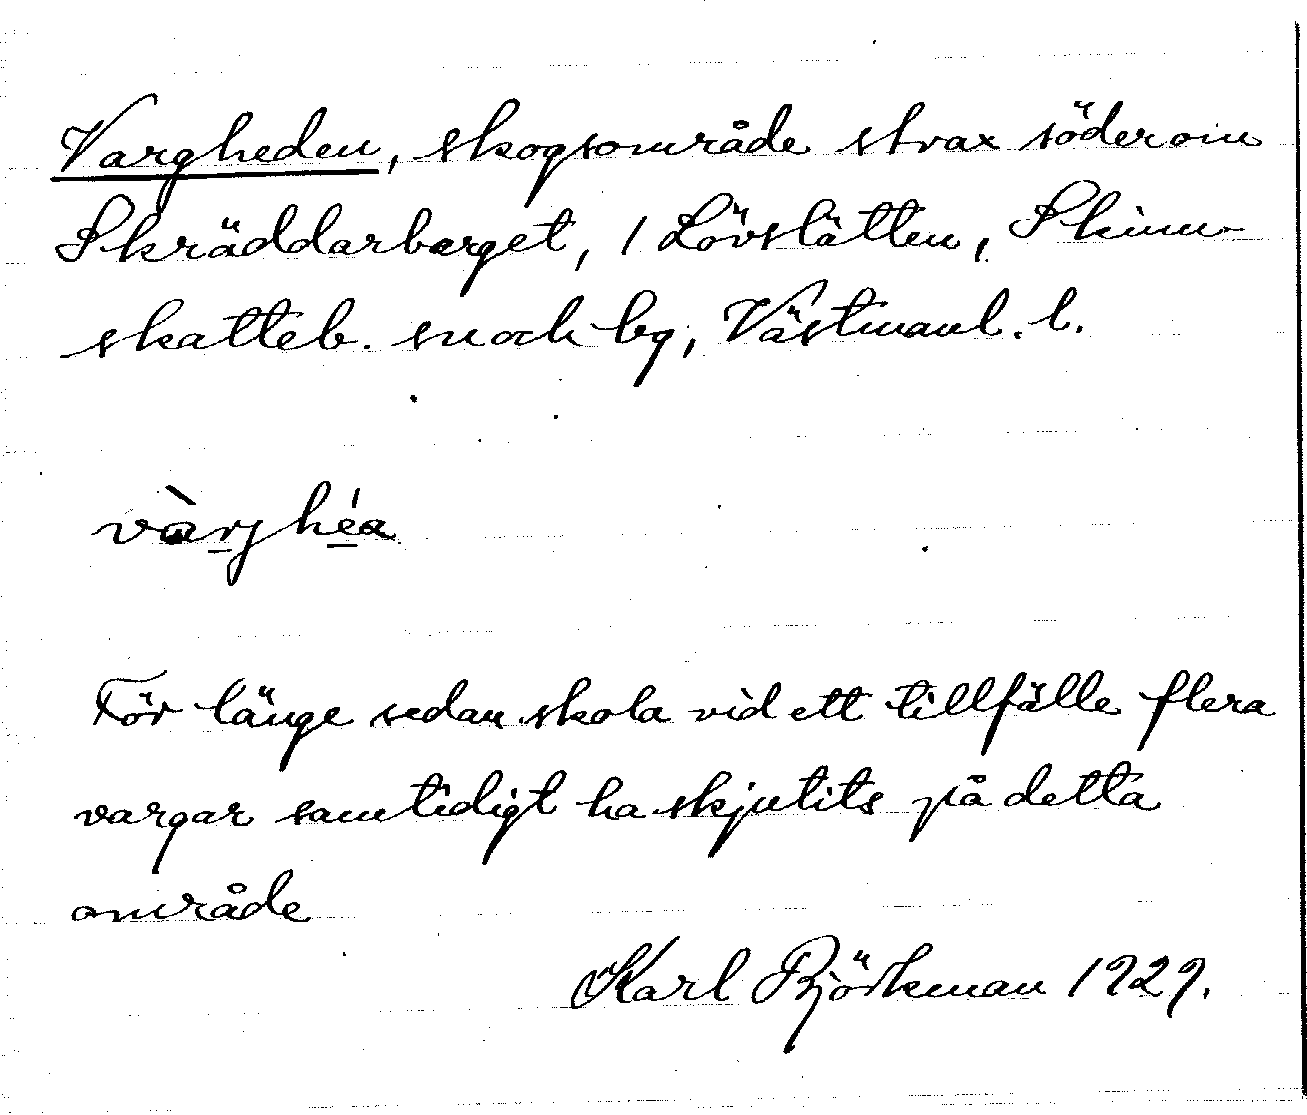 Vargheden, skogsområde strax söder om
Skräddarberget, 1 Lövslätten, Skinn-
skatteb. sn och bg, Västmanl. l.
vàrj héa
För länge sedan skola vid ett tillfälle flera
vargar samtidigt ha skjutits på detta
område
Karl Björkman 1929.